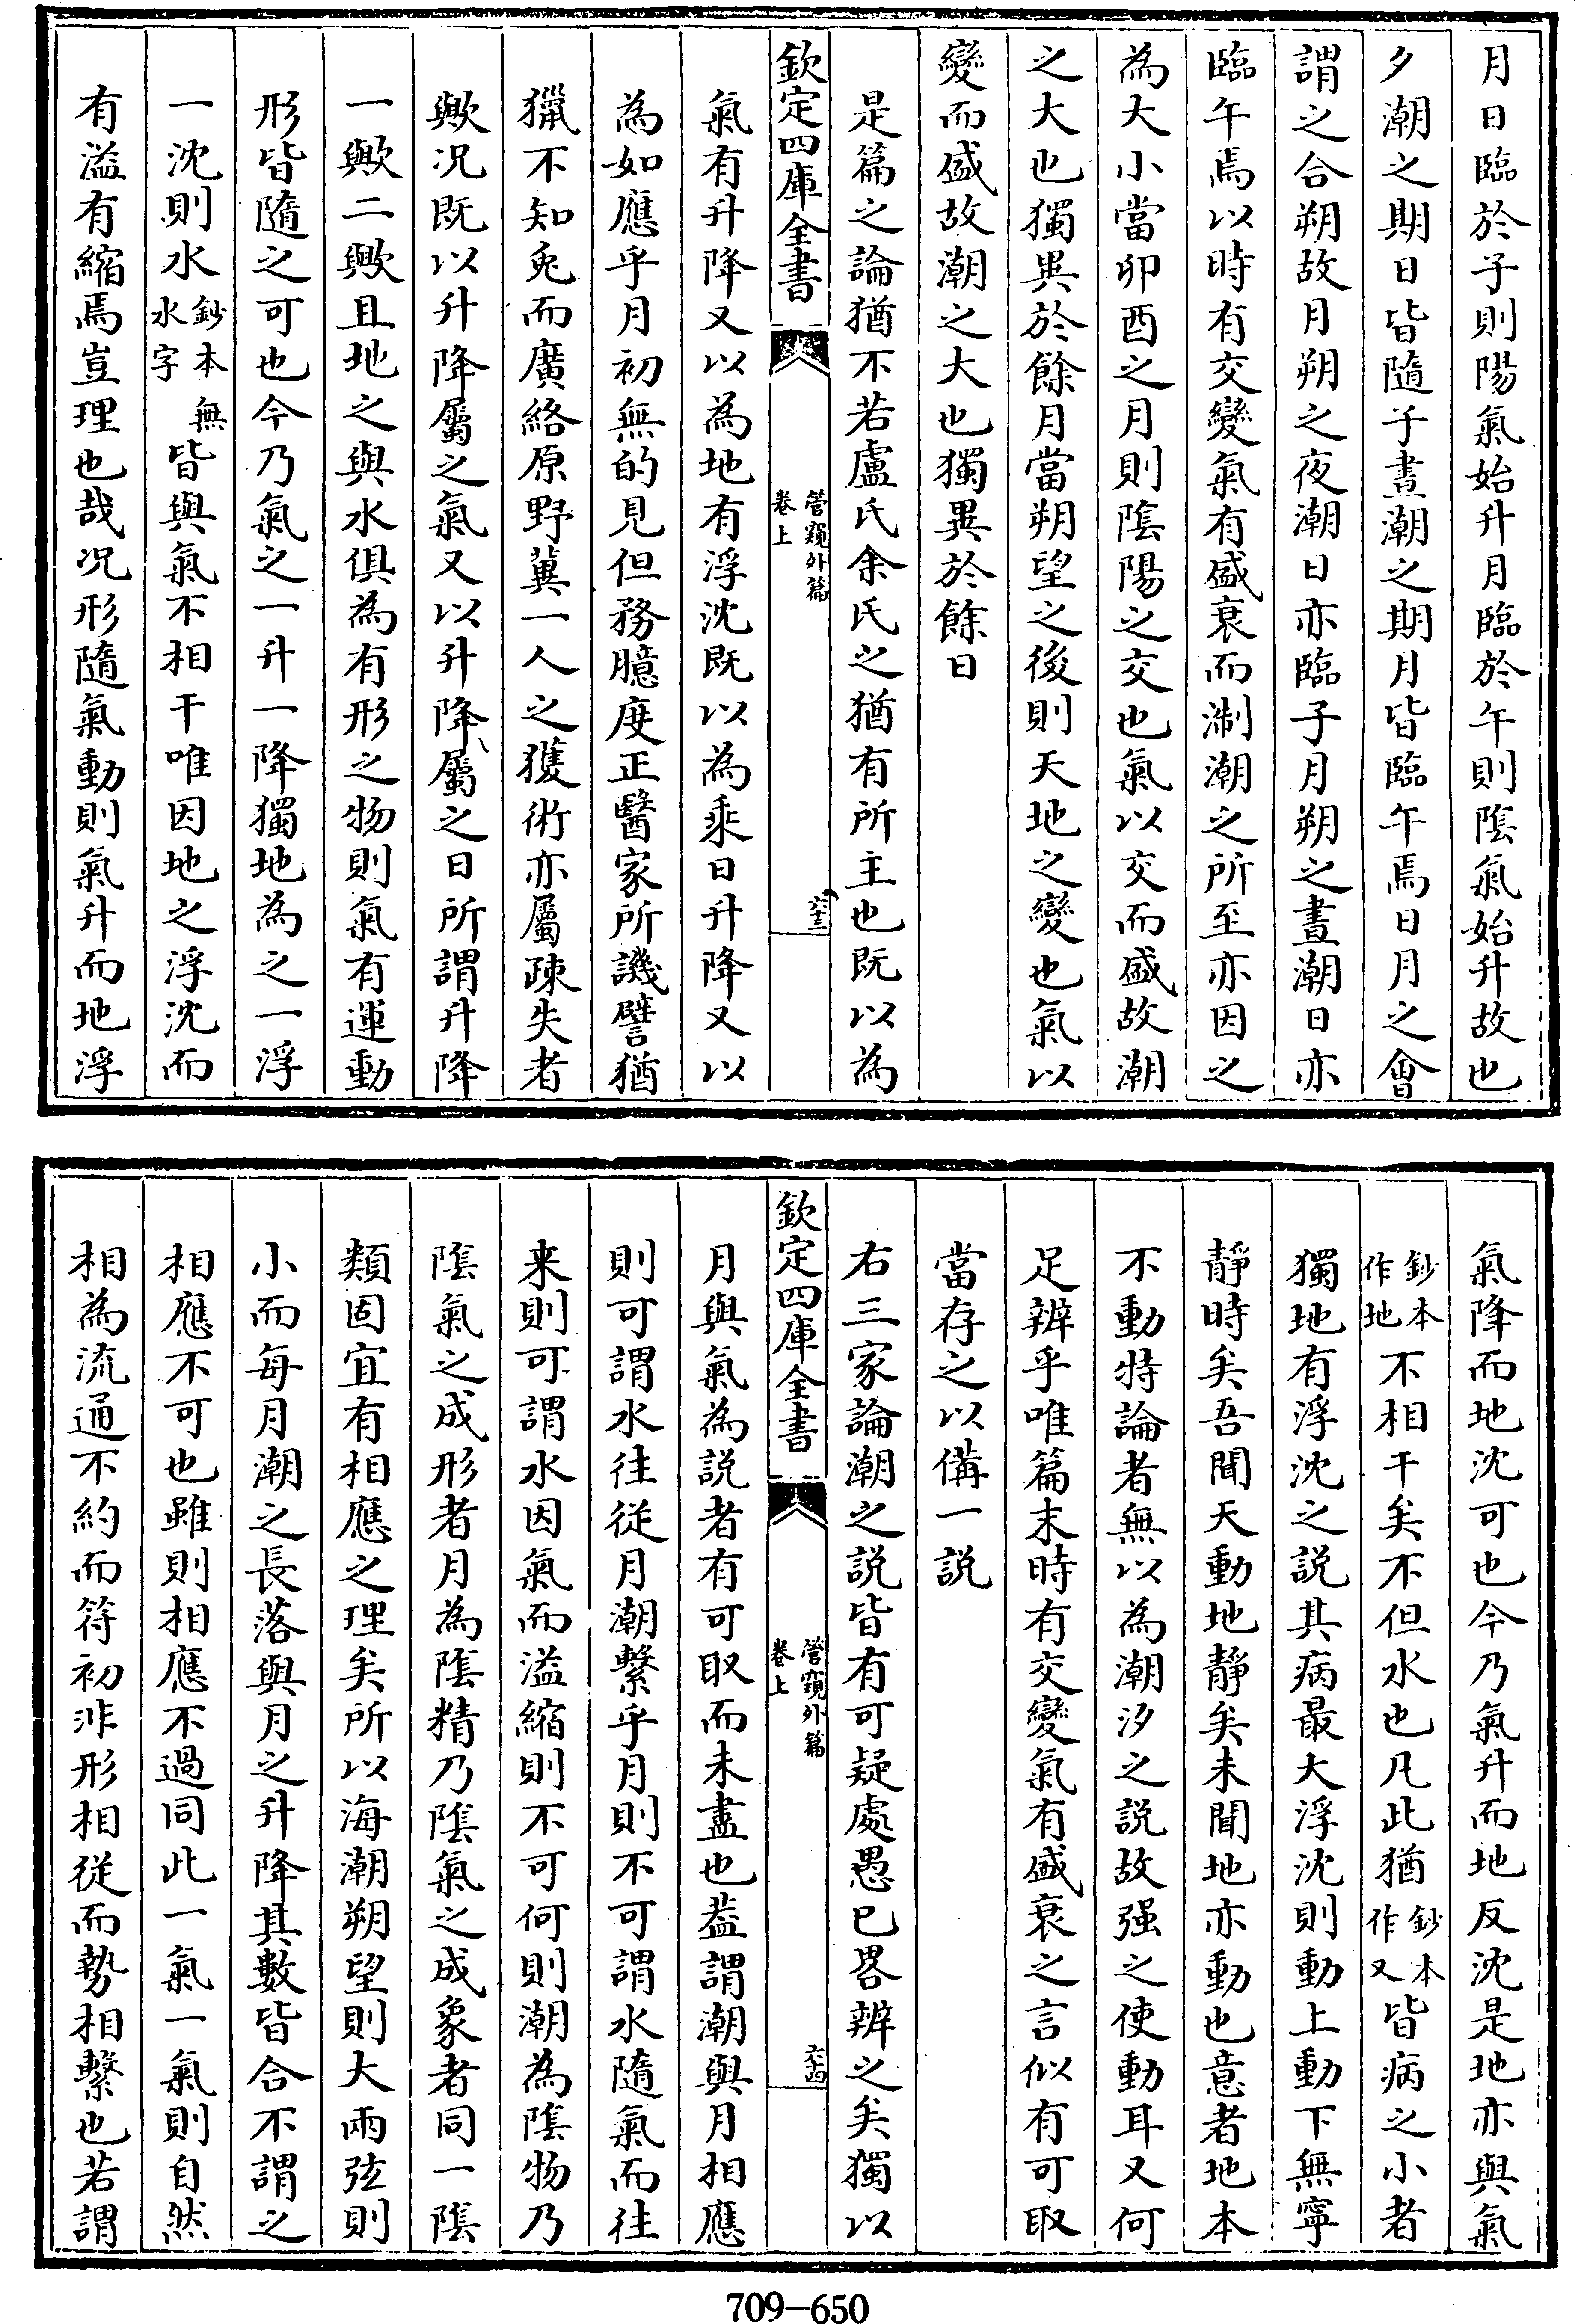 月日臨於子則陽氣始升月臨於午則隂氣始升故也
夕潮之期日皆隨子晝潮之期月皆臨午焉日月之會
謂之合朔故月朔之夜潮日亦臨子月朔之晝潮日亦
臨午焉以時有交變氣有盛衰而淛潮之所至亦因之
為大小當卯酉之月則隂陽之交也氣以交而盛故潮
之大也獨異於餘月當朔望之後則天地之變也氣以
變而盛故潮之大也獨異於餘日
是篇之論猶不若盧氏余氏之猶有所主也既以為
欽定四庫全書
管窺外篇
卷上
六十三
氣有升降又以為地有浮沈既以為乘日升降又以
為如應乎月初無的見但務臆度正醫家所譏譬猶
獵不知兔而廣絡原野冀一人之獲術亦屬疎失者
歟况既以升降屬之氣又以升降屬之日所謂升降
一歟二歟且地之與水俱為有形之物則氣有運動
形皆隨之可也今乃氣之一升一降獨地為之一浮
一沈則水鈔本無水字皆與氣不相干唯因地之浮沈而
有溢有縮焉豈理也哉况形隨氣動則氣升而地浮
氣降而地沈可也今乃氣升而地反沈是地亦與氣
鈔本作地不相干矣不但水也凡此猶鈔本作又皆病之小者
獨地有浮沈之說其病最大浮沈則動上動下無寧
靜時矣吾聞天動地靜矣未聞地亦動也意者地本
不動特論者無以為潮汐之説故强之使動耳又何
足辨乎唯篇末時有交變氣有盛衰之言似有可取
當存之以備一説
右三家論潮之説皆有可疑處愚已畧辨之矣獨以
欽定四庫全書
管窺外篇
卷上
六十四
月與氣為説者有可取而未盡也葢謂潮與月相應
則可謂水往從月潮繫乎月則不可謂水隨氣而往
来則可謂水因氣而溢縮則不可何則潮為隂物乃
隂氣之成形者月為隂精乃隂氣之成象者同一隂
類固宜有相應之理矣所以海潮朔望則大兩弦則
小而每月潮之長落與月之升降其數皆合不謂之
相應不可也雖則相應不過同此一氣一氣則自然
相為流通不約而符初非形相從而勢相繫也若謂
709-650